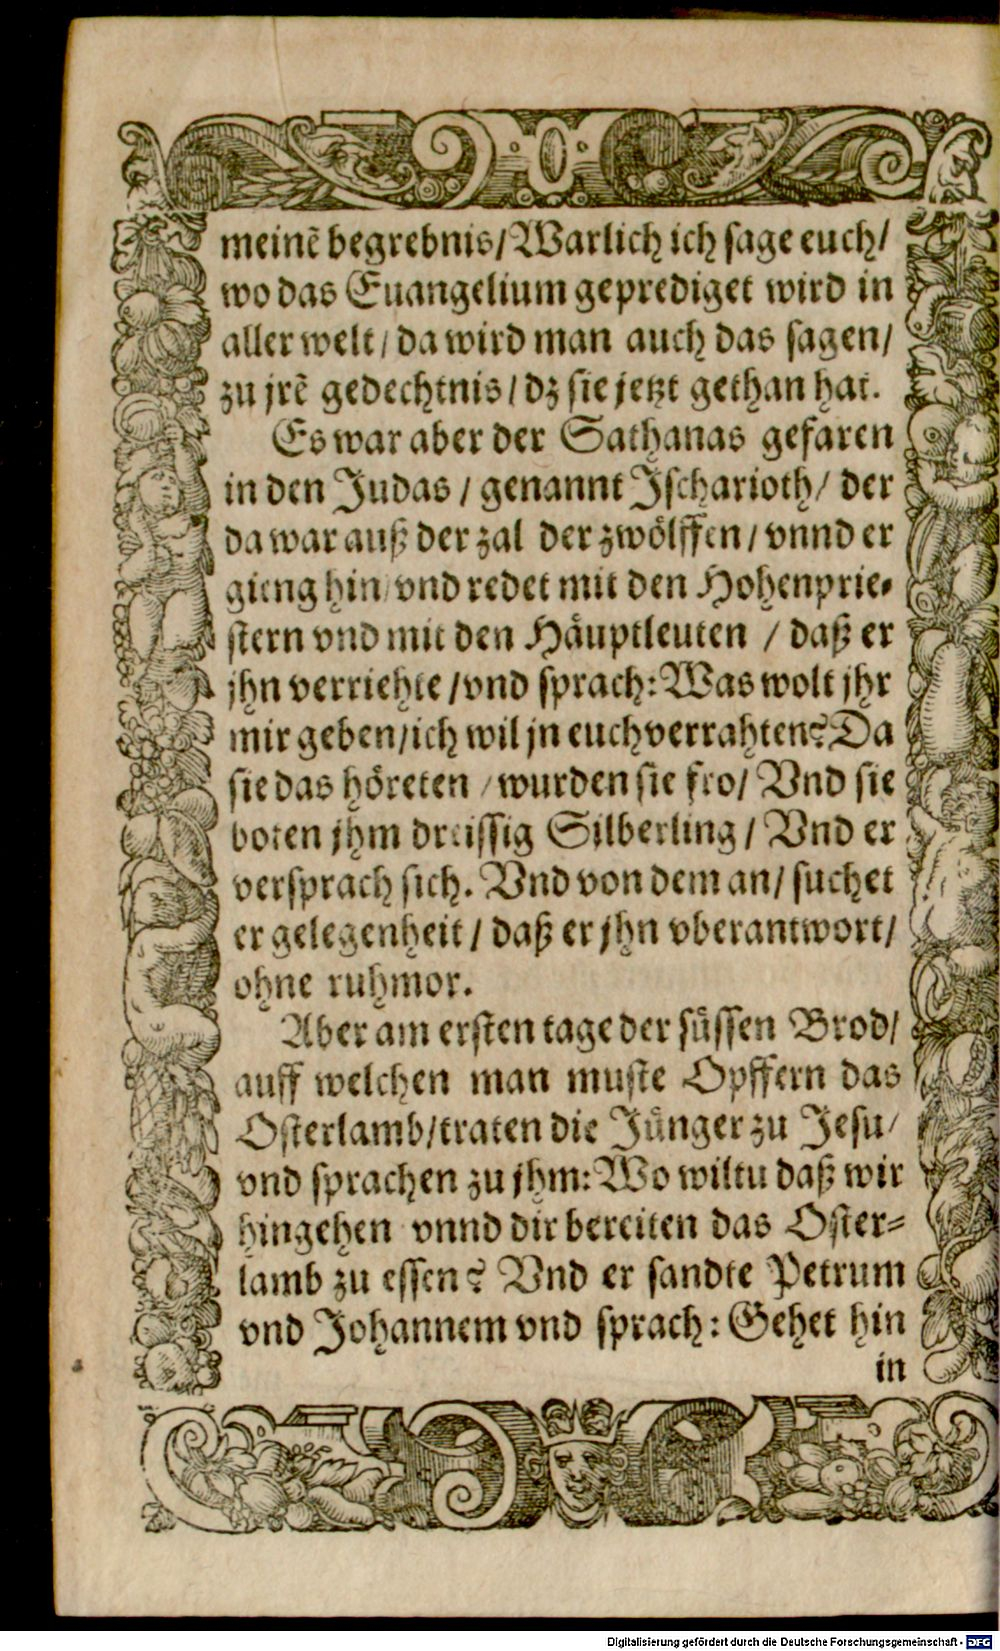 meinē begrebnis/Warlich ich sage euch/
wo das Euangelium geprediget wird in
aller welt/ da wird man auch das sagen/
zu jrē gedechtnis/ dz sie jetzt gethan hat.
Es war aber der Sathanas gefaren
in den Judas / genannt Jscharioth/ der
da war auß der zal der zwölffen/ vnnd er
gieng hin/ vnd redet mit den Hohenprie-
stern vnd mit den Häuptleuten / daß er
jhn verriehte/vnd sprach: Was wolt jhr
mir geben/ich wil jn euch verrahten? Da
sie das höreten /wurden sie fro/ Vnd sie
boten jhm dreissig Silberling/ Vnd er
versprach sich. Vnd von dem an/ suchet
er gelegenheit/ daß er jhn vberantwort/
ohne ruhmor.
Aber am ersten tage der süssen Brod/
auff welchen man muste Opffern das
Osterlamb/traten die Jünger zu Jesu/
vnd sprachen zu jhm: Wo wiltu daß wir
hingehen vnnd dir bereiten das Oster-
lamb zu essen? Vnd er sandte Petrum
vnd Johannem vnd sprach: Gehet hin
in
Digitalisierung gefördert durch die Deutsche Forschungsgemeinschaft - DFG